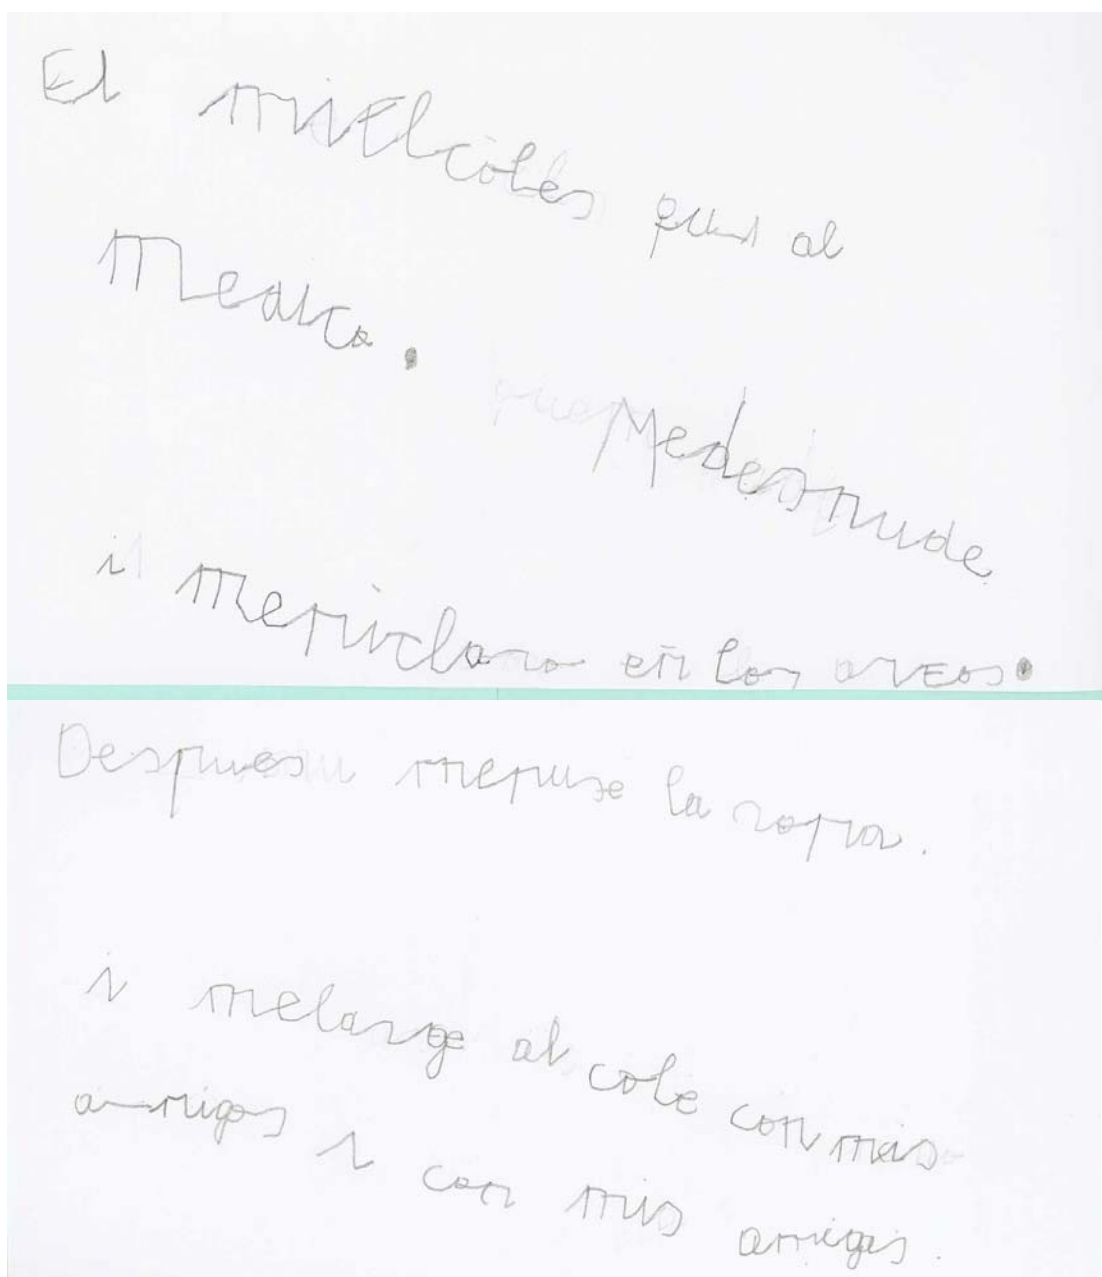 El mielcoles fui al
Medico.
Medesnude
i mepincharo en los
Despues mepuse la ropa.
i melarge al cole con mis
amigos i con mis amigas.